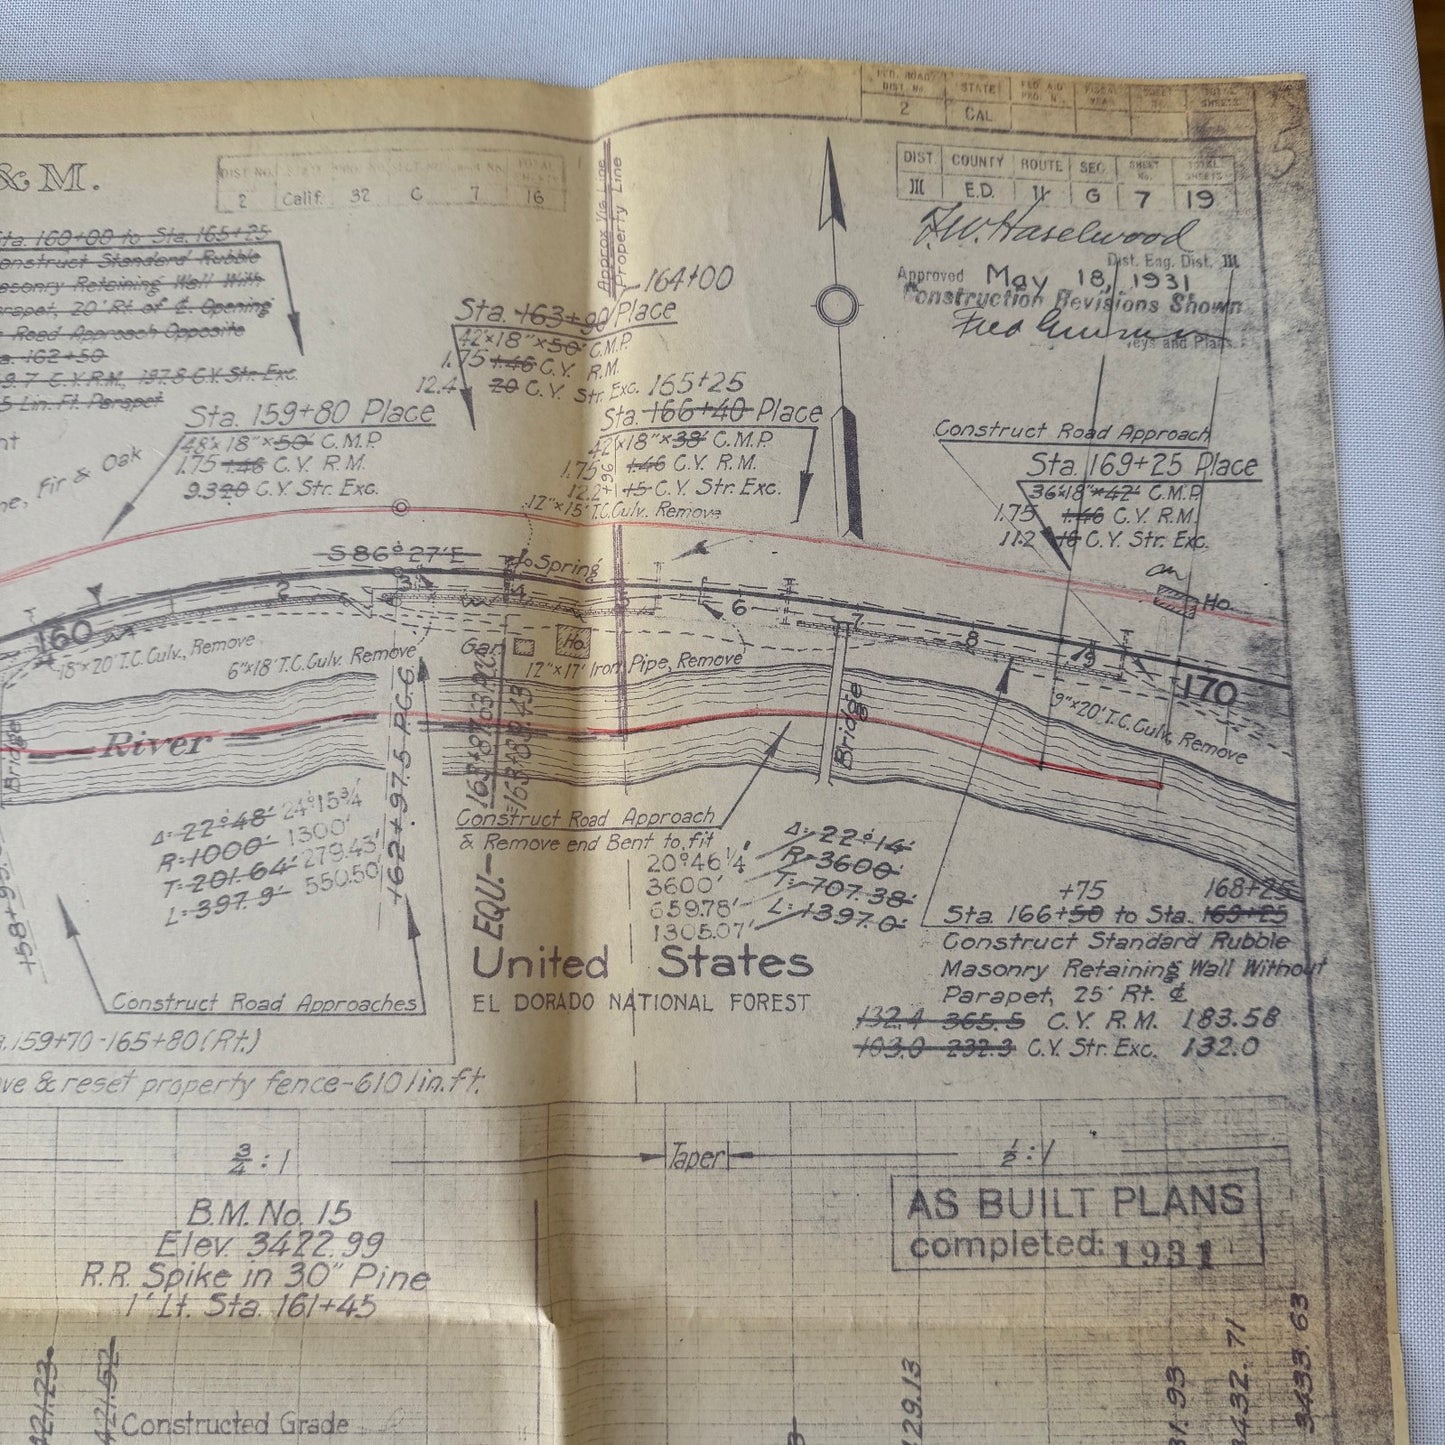 & M.
DIST. No.
TOTAL
2 Calif. 32 C 7 16
FED. ROAD DIST. No. STATE FED. AID FISCAL YEAR SHEET TOTAL SHEETS
2 CAL
DIST. COUNTY ROUTE SEC. SHEET No. TOTAL SHEETS
III E.D. 11 G 7 19
F.W. Haselwood
Dist. Eng. Dist. III
Approved May 18, 1931
Construction Revisions Shown
Fred
eys and Plans
5
Sta. 160+00 to Sta. 165+25
onstruct Standard Rubble
asonry Retaining Wall With
arapet, 20' Rt. of ₵. Opening
Road Approach Opposite
a. 162+50
9.7 C.Y.R.M., 197.8 C.Y. Str. Exc.
5 Lin. Ft. Parapet
nt
ne, Fir & Oak
Approx. Vis. Line
Property Line
164+00
Sta. 163+90 Place
42"x18"x50' C.M.P.
1.75 1.46 C.Y. R.M.
12.4 20 C.Y. Str. Exc.
Sta. 159+80 Place
48"x18"x50' C.M.P.
1.75 1.46 C.Y. R.M.
9.3 20 C.Y. Str. Exc.
165+25
Sta. 166+40 Place
42"x18"x38' C.M.P.
1.75 1.46 C.Y. R.M.
12.2 15 C.Y. Str. Exc.
+96
12"x15' T.C. Culv. Remove
Construct Road Approach
Sta. 169+25 Place
36"x18"x42' C.M.P.
1.75 1.46 C.Y. R.M.
11.2 16 C.Y. Str. Exc.
S 86° 27' E
Spring
Ho.
160
2
3
4
5
6
7
8
9
170
18"x20' T.C. Culv., Remove
6"x18' T.C. Culv. Remove
Gar.
Ho.
12"x17' Iron Pipe, Remove
9"x20' T.C. Culv., Remove
Bridge
River
Bridge
162+97.5 P.C.C.
163+87.63 P.R.C.
=163+89.43
EQU.
Δ=22°48' 24°15¾
R=1000' 1300'
T=201.64' 279.43'
L=397.9' 550.50'
Construct Road Approach
& Remove end Bent to fit
20°46¼' Δ=22°14'
3600' R=3600'
659.78' T=707.38'
1305.07' L=1397.0'
United States
EL DORADO NATIONAL FOREST
Construct Road Approaches
.159+70-165+80 (Rt.)
ve & reset property fence-610 lin. ft.
+75 168+25
Sta. 166+50 to Sta. 169+25
Construct Standard Rubble
Masonry Retaining Wall Without
Parapet, 25' Rt. ₵
132.4 365.5 C.Y. R.M. 183.58
103.0 232.3 C.Y. Str. Exc. 132.0
¾:1
Taper
½:1
B.M. No. 15
Elev. 3422.99
R.R. Spike in 30" Pine
1' Lt. Sta. 161+45
AS BUILT PLANS
completed: 1931
421.23
421.52
Constructed Grade
29.13
31.93
3432.71
3433.63